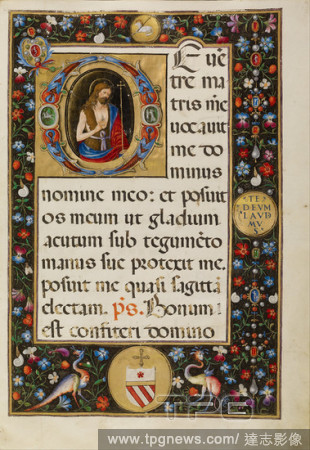 De uẽ
tre ma
tris me
uocauit
me do
minus
nomine meo: et posuit
os meum ut gladium
acutum sub tegumẽto
manus sue protexit me.
posuit me quasi sagittã
electam. p̃s. Bonum
est confiteri domino
TE
DEVM
LAVD
MV
S
TPG
www.tpgnews.com/達志影像